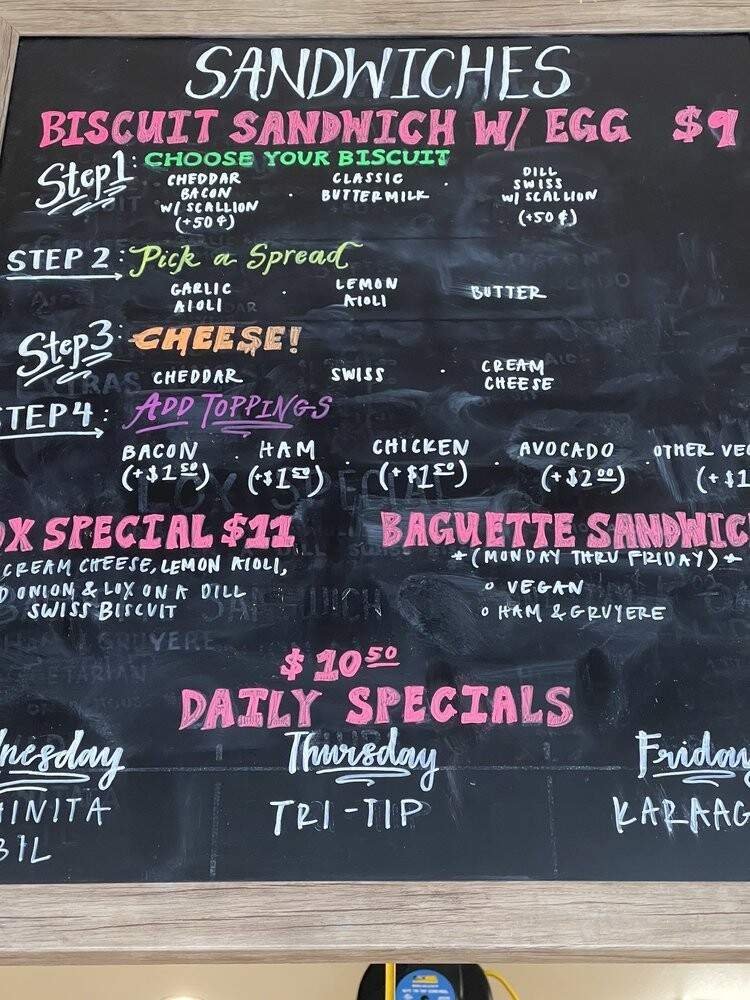 SANDWICHES
BISCUIT SANDWICH W/ EGG $9
Step 1: CHOOSE YOUR BISCUIT
CHEDDAR BACON W/ SCALLION (+50¢) · CLASSIC BUTTERMILK · DILL SWISS W/ SCALLION (+50¢)
STEP 2: Pick a Spread
GARLIC AIOLI · LEMON AIOLI · BUTTER
Step 3: CHEESE!
CHEDDAR · SWISS · CREAM CHEESE
STEP 4: ADD TOPPINGS
BACON (+$1.50) · HAM (+$1.50) · CHICKEN (+$1.50) · AVOCADO (+$2.00) · OTHER VEG (+$1
OX SPECIAL $11
CREAM CHEESE, LEMON AIOLI,
D ONION & LOX ON A DILL
SWISS BISCUIT
BAGUETTE SANDWIC
*(MONDAY THRU FRIDAY)*
○ VEGAN
○ HAM & GRUYERE
$10.50
DAILY SPECIALS
nesday
HINITA
BIL
Thursday
TRI-TIP
Friday
KARAAG